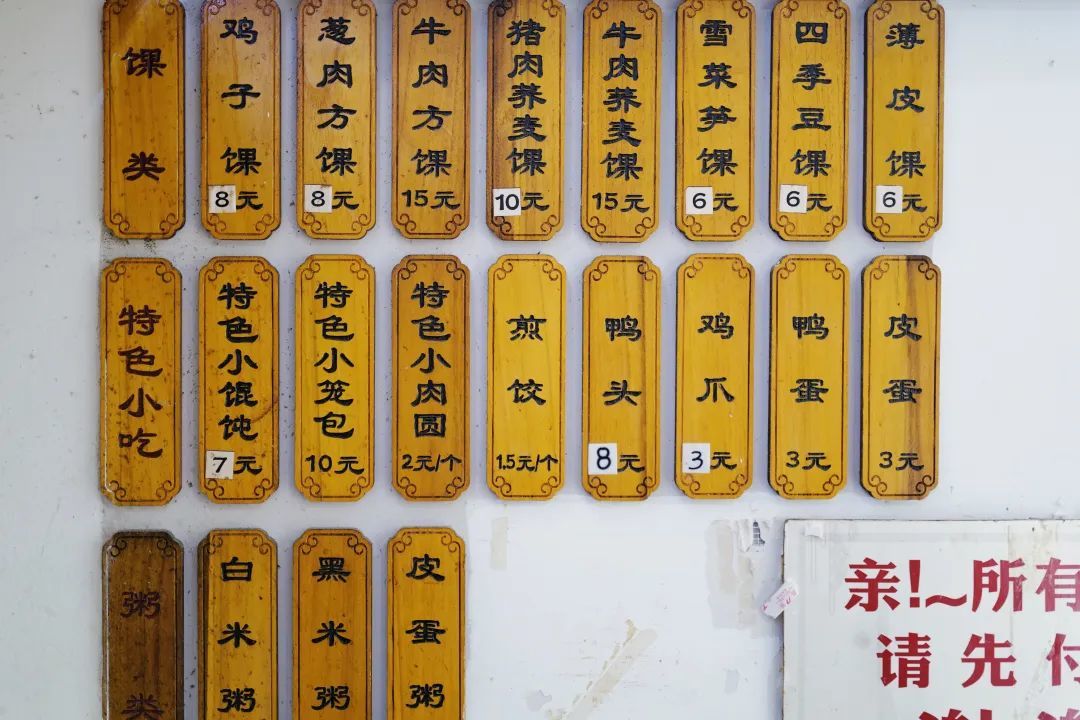 馃类
鸡子馃
8元
葱肉方馃
8元
牛肉方馃
15元
猪肉荞麦馃
10元
牛肉荞麦馃
15元
雪菜笋馃
6元
四季豆馃
6元
薄皮馃
6元
特色小吃
特色小馄饨
7元
特色小笼包
10元
特色小肉圆
2元/个
煎饺
1.5元/个
鸭头
8元
鸡爪
3元
鸭蛋
3元
皮蛋
3元
粥类
白米粥
黑米粥
皮蛋粥
亲!~所有
请先付